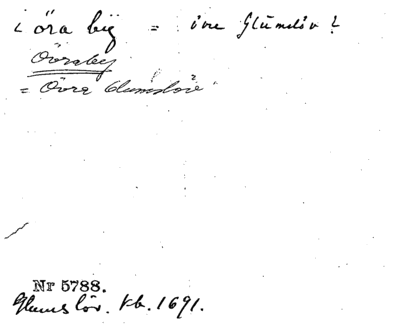 i öra by = ivre Glumslöv?
Övraby
= Övra Glumslöv?
Nr 5788.
Glumslöv. kb. 1691.